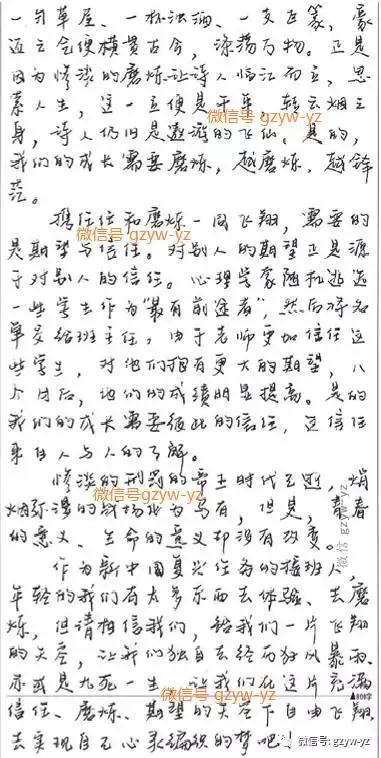 一间草屋、一杯浊酒、一支巨篆,豪
迈之会便横贯古今,涤荡万物。正是
因为惨淡的磨炼让诗人临江而立,思
索人生,这一立便是千年,转去烟尘
身,诗人仍旧是遨游的飞仙。是的,
微信号 gzyw-yz
我们的成长需要磨炼,越磨炼,越锋
芒。
携信任和磨炼一同飞翔,需要的
微信号 gzyw-yz
是期望与信任。对别人的期望正是源
于对别人的信任。心理学家随机选
一些学生作为“最有前途者”,然后将名
单交给班主任,由于老师更加信任这
些学生,对他们抱有更大的期望,八
个月后,他们的成绩明显提高。是的
我们的成长需要彼此的信任,这信任
来自人与人的了解。
惨淡的刑罚的帝王时代已逝,硝
烟弥漫的战场化为乌有,但是,青春
微信号 gzyw-yz
的意义、生命的意义却没有改变。
微信 gzyw-yz
作为新中国复兴任务的接班人,
年轻的我们有太多东西去体验、去磨
炼,但请相信我们,给我们一片飞翔
的天空,让我们独自去经历狂风暴雨、
亦或是九死一生,让我们在这片充满
微信号 gzyw-yz
▲800字
信任、磨炼、期望的天空下自由飞翔,
去实现自己心灵编织的梦吧!
微信号: gzyw-yz